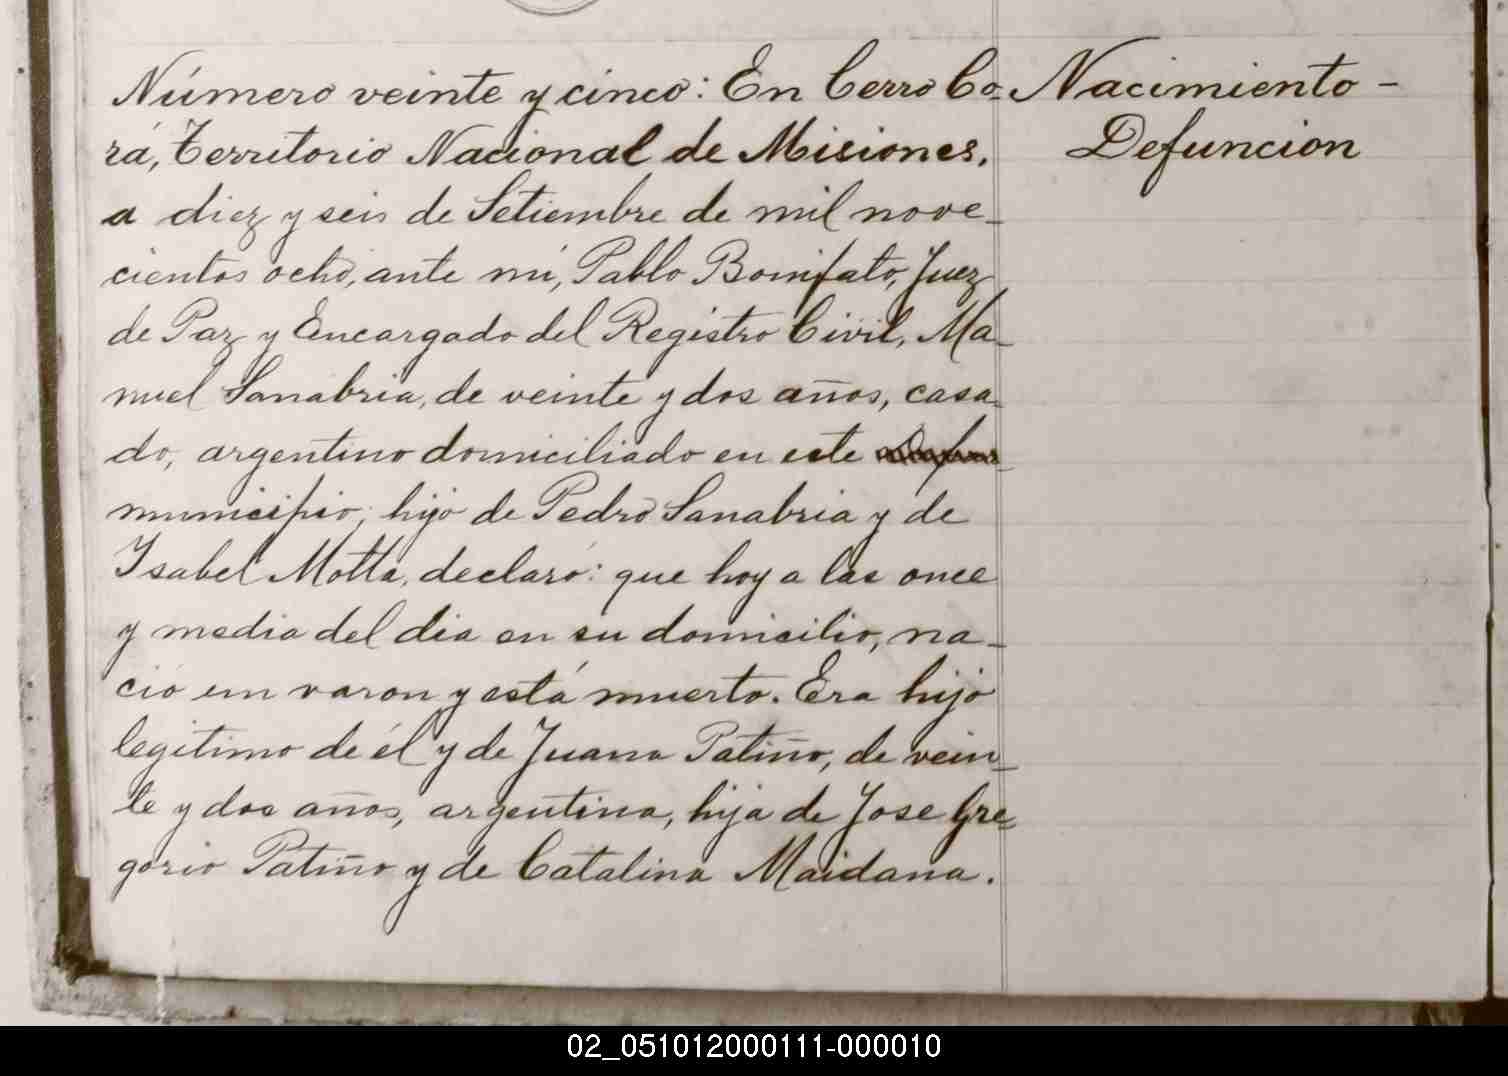 Número veinte y cinco: En Cerro Co-
rá, Territorio Nacional de Misiones,
a diez y seis de Setiembre de mil nove-
cientos ocho, ante mi, Pablo Bonifato, Juez
de Paz y Encargado del Registro Civil, Ma-
nuel Sanabria, de veinte y dos años, casa-
do, argentino domiciliado en este
municipio, hijo de Pedro Sanabria y de
Isabel Motta, declaró: que hoy a las once
y media del dia en su domicilio, na-
ció un varon y está muerto. Era hijo
legitimo de él y de Juana Patiño, de vein-
te y dos años, argentina, hija de Jose Gre-
gorio Patiño y de Catalina Maidana.
Nacimiento -
Defuncion
02_051012000111-000010